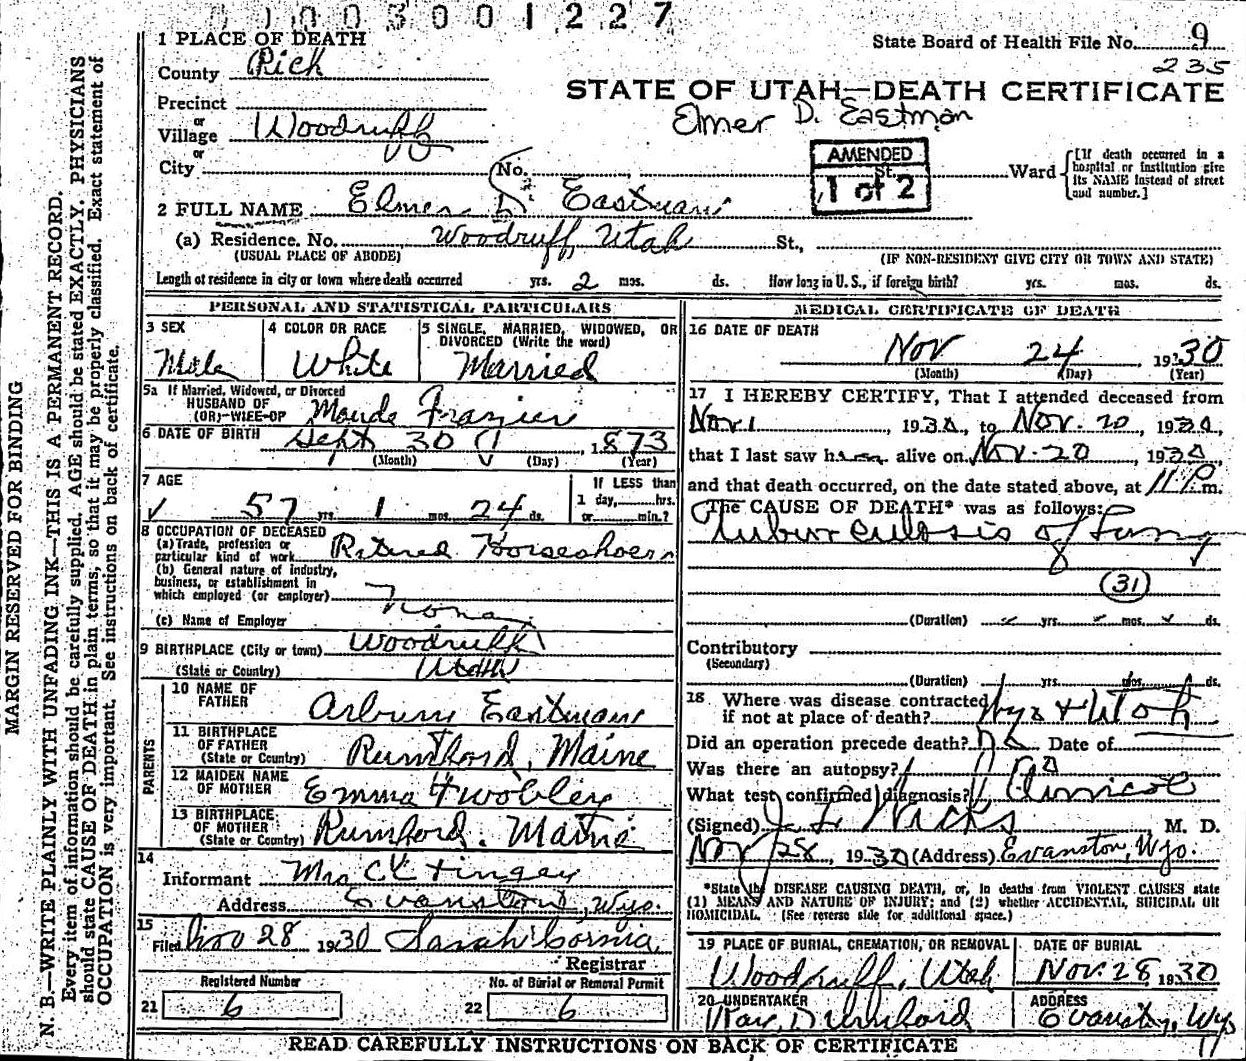 0 1 0 0 3 0 0 1 2 2 7
1 PLACE OF DEATH
State Board of Health File No. 9
235
County Rich
STATE OF UTAH—DEATH CERTIFICATE
Elmer D. Eastman
Precinct
or
Village Woodruff
or
City No. St. Ward
AMENDED
1 of 2
[If death occurred in a
hospital or institution give
its NAME instead of street
and number.]
2 FULL NAME Elmer D. Eastman
(a) Residence. No. Woodruff, Utah St.,
(USUAL PLACE OF ABODE) (IF NON-RESIDENT GIVE CITY OR TOWN AND STATE)
Length of residence in city or town where death occurred yrs. 2 mos. ds. How long in U. S., if foreign birth? yrs. mos. ds.
PERSONAL AND STATISTICAL PARTICULARS
3 SEX Male
4 COLOR OR RACE White
5 SINGLE, MARRIED, WIDOWED, OR
DIVORCED (Write the word)
Married
5a If Married, Widowed, or Divorced
HUSBAND OF
(OR) WIFE OF Maude Frazier
6 DATE OF BIRTH Sept 30, 1873
(Month) (Day) (Year)
7 AGE 57 yrs. 1 mos. 24 ds.
If LESS than
1 day, hrs.
or min.?
8 OCCUPATION OF DECEASED
(a) Trade, profession or
particular kind of work Retired Horseshoer
(b) General nature of industry,
business, or establishment in
which employed (or employer)
None
(c) Name of Employer
9 BIRTHPLACE (City or town) Woodruff
(State or Country) Utah
PARENTS
10 NAME OF
FATHER Eastman
11 BIRTHPLACE
OF FATHER
(State or Country) Rumford, Maine
12 MAIDEN NAME
OF MOTHER Emma
13 BIRTHPLACE
OF MOTHER
(State or Country) Rumford, Maine
14
Informant Mrs C E Tingey
Address Evanston, Wyo.
15
Filed Nov 28 1930 Sarah Cornia
Registrar
Registered Number
21 6
No. of Burial or Removal Permit
22 6
MEDICAL CERTIFICATE OF DEATH
16 DATE OF DEATH
Nov 24 1930
(Month) (Day) (Year)
17 I HEREBY CERTIFY, That I attended deceased from
Nov. 1, 1930, to Nov. 20, 1930,
that I last saw him alive on Nov. 20, 1930
and that death occurred, on the date stated above, at 11 P.m.
The CAUSE OF DEATH* was as follows:
Tuberculosis of Lung
31
(Duration) yrs. mos. ds.
Contributory
(Secondary)
(Duration) yrs. mos. ds.
18 Where was disease contracted
if not at place of death? Wyo & Utah
Did an operation precede death? No Date of
Was there an autopsy? No
What test confirmed diagnosis? Clinical
(Signed) J. L. Wicks M. D.
Nov 28, 1930 (Address) Evanston, Wyo.
*State the DISEASE CAUSING DEATH, or, in deaths from VIOLENT CAUSES state
(1) MEANS AND NATURE OF INJURY; and (2) whether ACCIDENTAL, SUICIDAL OR
HOMICIDAL. (See reverse side for additional space.)
19 PLACE OF BURIAL, CREMATION, OR REMOVAL
Woodruff, Utah
DATE OF BURIAL
Nov. 28, 1930
20 UNDERTAKER
ADDRESS
Evanston, Wyo
READ CAREFULLY INSTRUCTIONS ON BACK OF CERTIFICATE
MARGIN RESERVED FOR BINDING
N. B.—WRITE PLAINLY WITH UNFADING INK—THIS IS A PERMANENT RECORD.
Every item of information should be carefully supplied. AGE should be stated EXACTLY. PHYSICIANS
should state CAUSE OF DEATH in plain terms, so that it may be properly classified. Exact statement of
OCCUPATION is very important. See instructions on back of certificate.